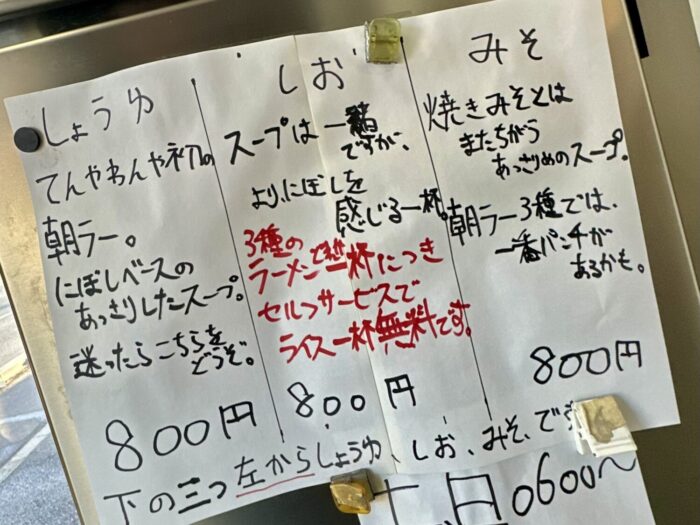 しょうゆ
てんやわんや初の
朝ラー。
にぼしベースの
あっさりしたスープ。
迷ったらこちらを
どうぞ。
800円
しお
スープは一緒
ですが、
より、にぼしを
感じる一杯。
3種の
ラーメンご一杯につき
セルフサービスで
ライス一杯無料です。
800円
みそ
焼きみそとは
またちがう
あっさりめのスープ。
朝ラー3種では、
一番パンチが
あるかも。
800円
下の三つ左からしょうゆ、しお、みそ、です
0600〜